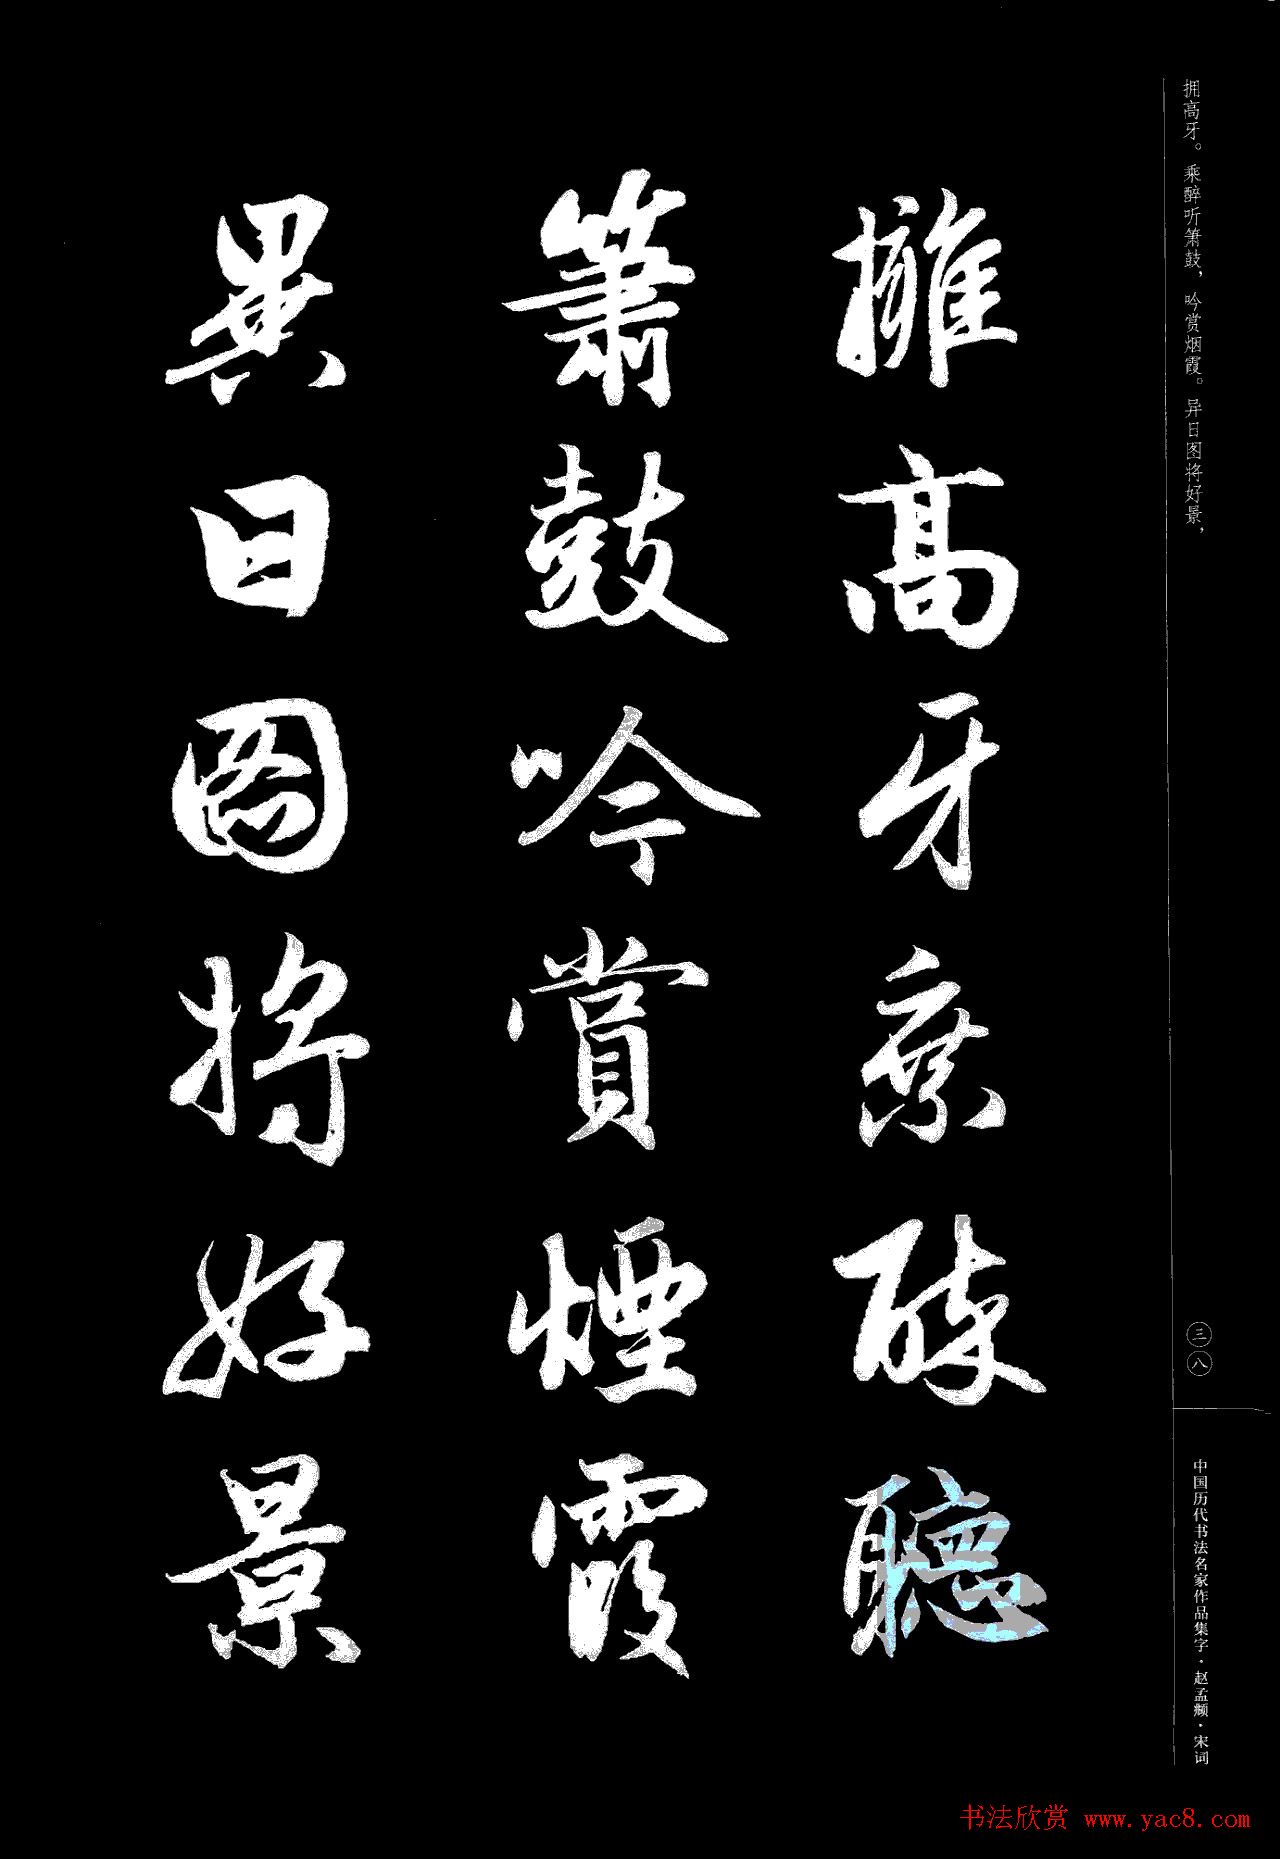 拥高牙。乘醉听箫鼓，吟赏烟霞。异日图将好景，
擁高牙乘醉聽
簫鼓吟賞煙霞
異日圖將好景
三八
中国历代书法名家作品集字·赵孟頫·宋词
书法欣赏 www.yac8.com